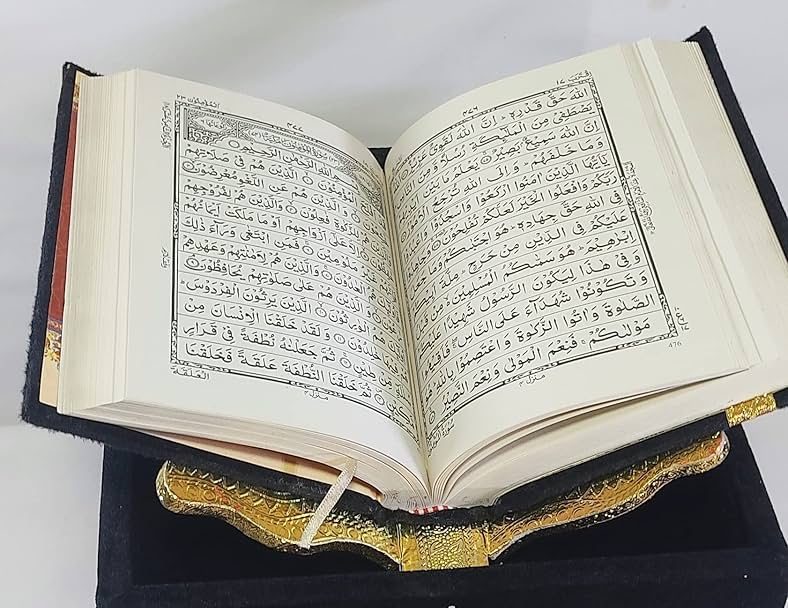 قترب ١٧
٤٧٦
اللّٰهَ حَقَّ قَدْرِهٖ ؕ اِنَّ اللّٰهَ لَقَوِیٌّ عَزِیْزٌ
یَصْطَفِیْ مِنَ الْمَلٰٓئِكَةِ رُسُلًا وَّمِنَ
اِنَّ اللّٰهَ سَمِیْعٌۢ بَصِیْرٌ ۝ یَعْلَمُ مَا بَیْنَ
وَ مَا خَلْفَهُمْ ؕ وَ اِلَى اللّٰهِ تُرْجَعُ
یٰۤاَیُّهَا الَّذِیْنَ اٰمَنُوا ارْكَعُوْا وَ اسْجُدُوْا
رَبَّكُمْ وَ افْعَلُوا الْخَیْرَ لَعَلَّكُمْ تُفْلِحُوْنَ ۝
فِی اللّٰهِ حَقَّ جِهَادِهٖ ؕ هُوَ اجْتَبٰىكُمْ وَ مَا
عَلَیْكُمْ فِی الدِّیْنِ مِنْ حَرَجٍ ؕ مِلَّةَ
اِبْرٰهِیْمَ ؕ هُوَ سَمّٰىكُمُ الْمُسْلِمِیْنَ
وَ فِیْ هٰذَا لِیَكُوْنَ الرَّسُوْلُ شَهِیْدًا
وَ تَكُوْنُوْا شُهَدَآءَ عَلَى النَّاسِ
الصَّلٰوةَ وَ اٰتُوا الزَّكٰوةَ وَ اعْتَصِمُوْا بِاللّٰهِ
مَوْلٰىكُمْ ۚ فَنِعْمَ الْمَوْلٰى وَ نِعْمَ النَّصِیْرُ ۝
منزل ٤
476
المؤمنون ٢٣
٤٧٧
بِسْمِ اللّٰهِ الرَّحْمٰنِ الرَّحِیْمِ
الْمُؤْمِنُوْنَ ۝ الَّذِیْنَ هُمْ فِیْ صَلَاتِهِمْ
وَ الَّذِیْنَ هُمْ عَنِ اللَّغْوِ مُعْرِضُوْنَ ۝
لِلزَّكٰوةِ فٰعِلُوْنَ ۝ وَ الَّذِیْنَ هُمْ لِفُرُوْجِهِمْ
عَلٰۤى اَزْوَاجِهِمْ اَوْ مَا مَلَكَتْ اَیْمَانُهُمْ
مَلُوْمِیْنَ ۝ فَمَنِ ابْتَغٰى وَرَآءَ ذٰلِكَ
هُمُ الْعٰدُوْنَ ۝ وَ الَّذِیْنَ هُمْ لِاَمٰنٰتِهِمْ وَ عَهْدِهِمْ
وَ الَّذِیْنَ هُمْ عَلٰى صَلَوٰتِهِمْ یُحَافِظُوْنَ ۝
هُمُ الْوٰرِثُوْنَ ۝ الَّذِیْنَ یَرِثُوْنَ الْفِرْدَوْسَ ؕ
خٰلِدُوْنَ ۝ وَ لَقَدْ خَلَقْنَا الْاِنْسَانَ مِنْ
مِّنْ طِیْنٍ ۝ ثُمَّ جَعَلْنٰهُ نُطْفَةً فِیْ قَرَارٍ
مَّكِیْنٍ ۝ ثُمَّ خَلَقْنَا النُّطْفَةَ عَلَقَةً فَخَلَقْنَا
منزل ٤
الْعَلَقَةَ